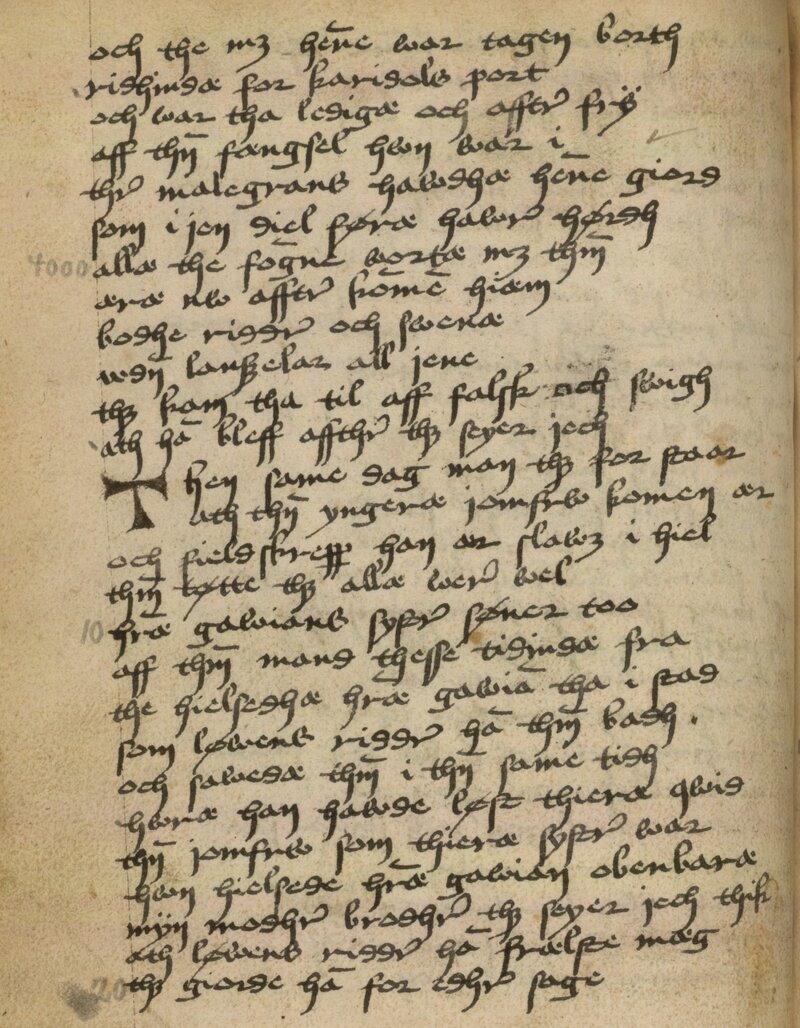 och the mꝫ hēne war tagen borth
ridhindæ for karidols port
och war tha ledigæ och afftr̄ frÿ
aff thn̄ fængsel hwn war i
thr̄ malegrans hawdhæ hēne giord
som i jen diel føræ hawr̄ hørdh
4000 allæ the fogne wortæ mꝫ thm̄
æræ nw afftr̄ komē hiæm
bodhe riddr̄ och swenæ
wdn̄ lanszelar all jene
thꝫ kam tha til aff falsk och swigh
ath hā bleff affthr̄ thꝫ seyer jech
Then same dag man thꝫ for staar
ath thn̄ yngeræ jomfrw komen ær
och fieldskrepp han ær slawꝫ i hiel
thm̄ tøtte thꝫ allæ wer̄ wel
10 hrǣ gawians systr̄ søner too
aff thm̄ mand thesse tidindæ fra
the hielsedhæ hrǣ gawiā tha i stad
som løwens riddr̄ hā thm̄ badh .
och sawedæ thm̄ i thn̄ same tidh
hworæ han hawde løst thieræ qwid
thn̄ jomfrw som thieræ systr̄ war
hwn hielsede hrǣ gawian obenbaræ
myn modhr̄ brodhr̄ thꝫ seyer jech thik
ath løwens riddr̄ hā frælste mæg
20 thꝫ giorde hā for edhr̄ sage